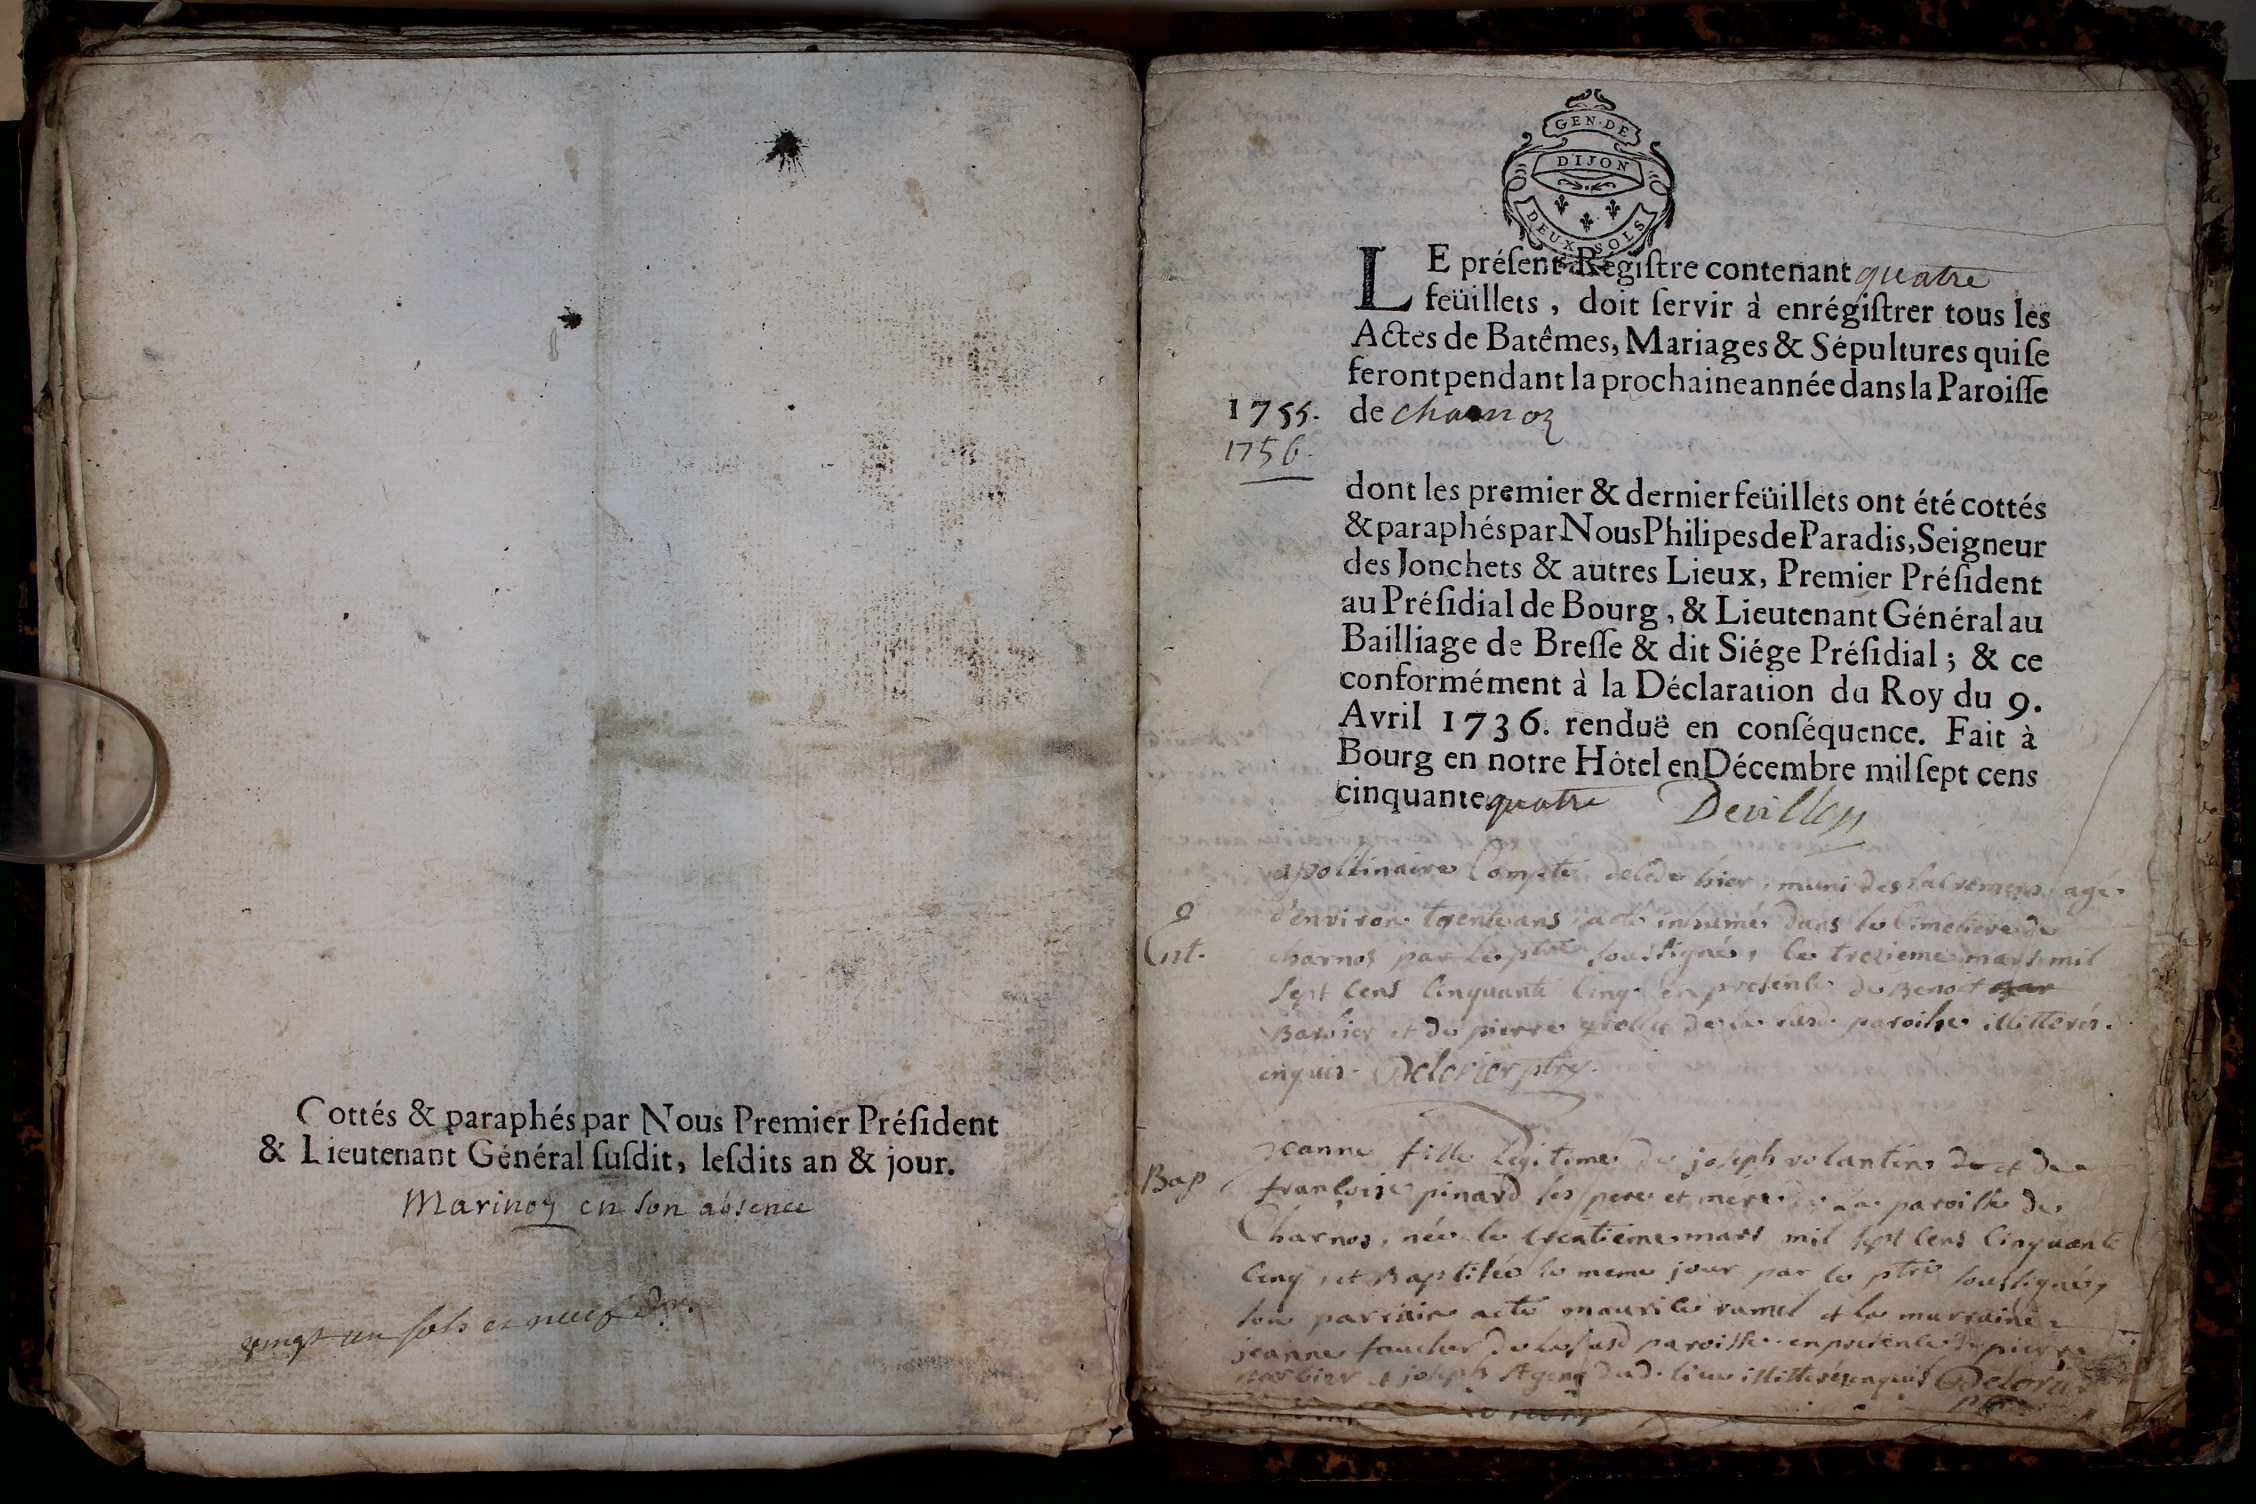 Cottés & paraphés par Nous Premier Préſident
& Lieutenant Général ſuſdit, leſdits an & jour.
Marinoz en son absence
vingt un sols et neuf
GEN·DE
DIJON
DEUX SOLS
LE préſent Régiſtre contenant quatre
feüillets, doit ſervir à enrégiſtrer tous les
Actes de Batêmes, Mariages & Sépultures qui ſe
feront pendant la prochaine année dans la Paroiſſe
1755. de charnoz
1756.
dont les premier & dernier feüillets ont été cottés
& paraphés par Nous Philipes de Paradis, Seigneur
des Jonchets & autres Lieux, Premier Préſident
au Préſidial de Bourg, & Lieutenant Général au
Bailliage de Breſſe & dit Siége Préſidial; & ce
conformément à la Déclaration du Roy du 9.
Avril 1736. renduë en conſéquence. Fait à
Bourg en notre Hôtel en Décembre mil ſept cens
cinquante quatre Devillon
apollinaire Compte decédé hier, muni des sacremens, agé
d'environ trente ans a été inhumé dans le Cimetiere de
charnos par le ptre soussigné, le trezieme mars mil
sept cens cinquante cinq en presence de Benoit
Barbier et de pierre de la susd. paroisse illitterés
enquis. Delorier ptre.
Bap
jeanne fille légitime de joseph volantin et de
françoise pinard ses pere et mére de la paroisse de
Charnos, née le trentieme mars mil sept cens cinquante
cinq, et Baptisée le meme jour par le ptre soussigné,
son parrain a été maurice ramel et la marraine
jeanne faucher de la susd paroisse en presence de pierre
barbier et joseph dud. lieu illitterés enquis Delorier
ptre